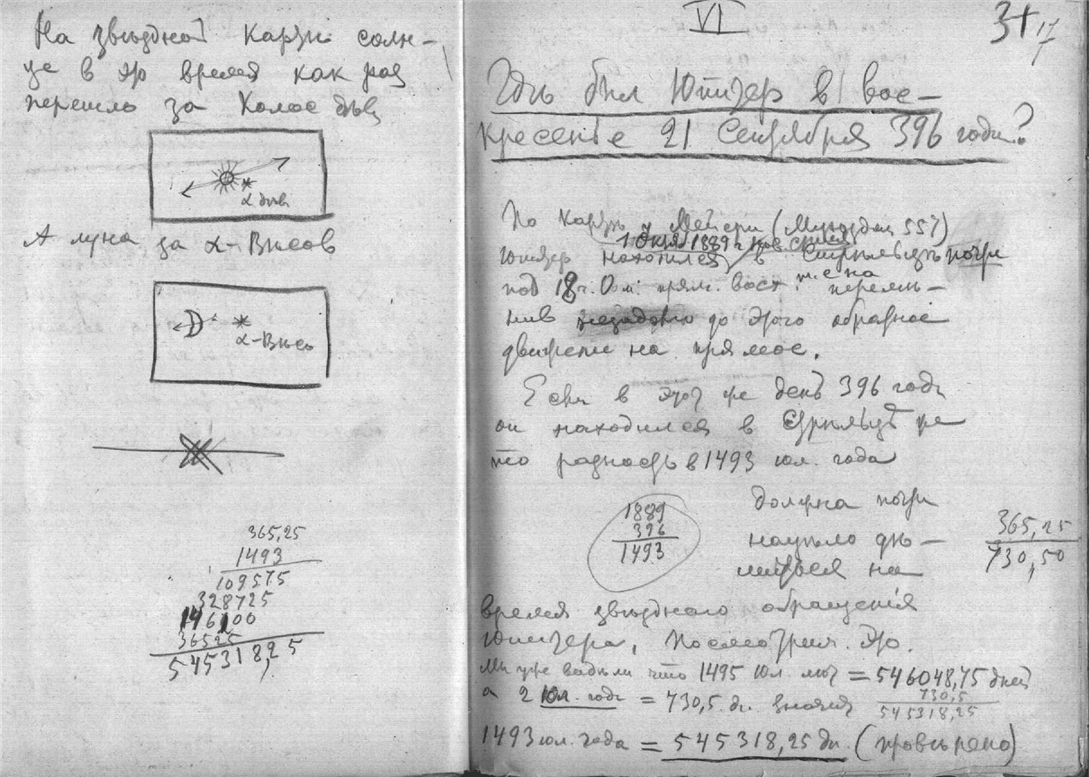 На звѣздной картѣ солн-
це в это время как раз
перешло за Колос Дѣвы
α Дѣв
А луна за α-Вѣсов
α-Вѣсов
365,25
1493
109575
328725
146100
36525
545318,25
VI
17
Гдѣ был Юпитер в вос-
кресенье 21 Сентября 396 года?
По картѣ у Мейера (Мирозданiе 557)
1 Окт 1889 г нов. стиля
Юпитер находился в Стрѣльцѣ почти
под 18 ч. 0 м. прям. восх.
перемѣ-
нив незадолго до этого обратное
движенiе на прямое.
Если в этот же день 396 года
он находился в Стрѣльцѣ же
то разность в 1493 юл. года
1889
396
1493
должна почти
нацѣло дѣ-
литься на
365,25
730,50
время звѣзднаго обращенiя
Юпитера. Посмотрим это.
Мы уже видѣли что 1495 юл. лѣт = 546048,75 дней
а 2 юл. года = 730,5 дн. значит
730,5
545318,25
1493 юл. года = 545318,25 дн. (провѣрено)